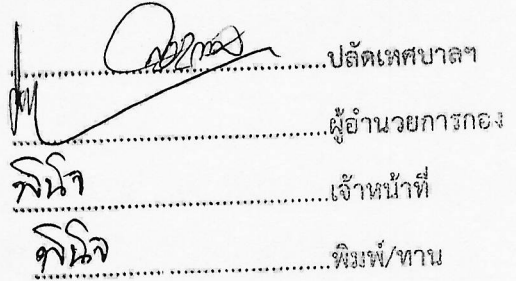 ปลัดเทศบาลฯ
ผู้อำนวยการกอง
พินิจ เจ้าหน้าที่
พินิจ พิมพ์/ทาน